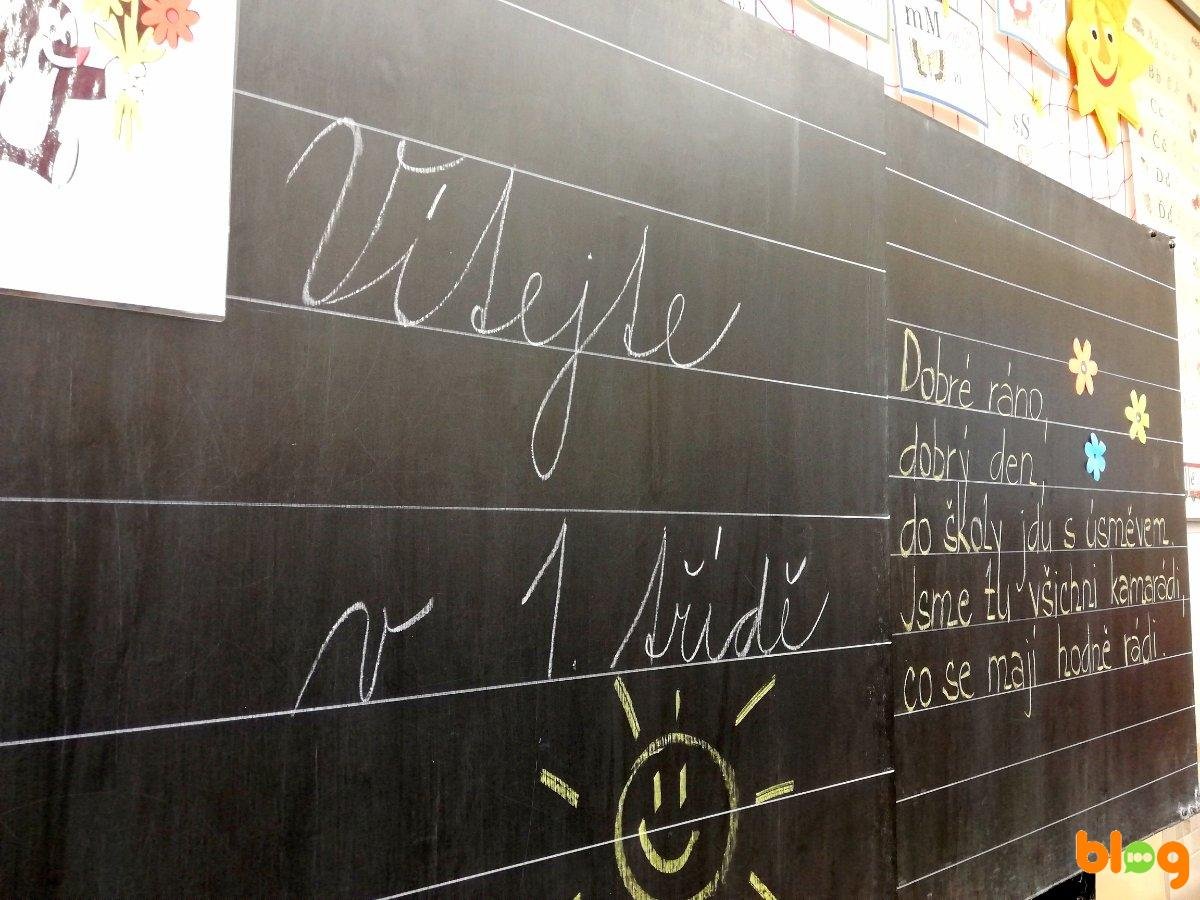 Vítejte
v 1. třídě
Dobré ráno,
dobrý den,
do školy jdu s úsměvem.
Jsme tu všichni kamarádi,
co se mají hodně rádi.
mM
sS
A a
B b
C c
Č č
D d
Ď ď
blog